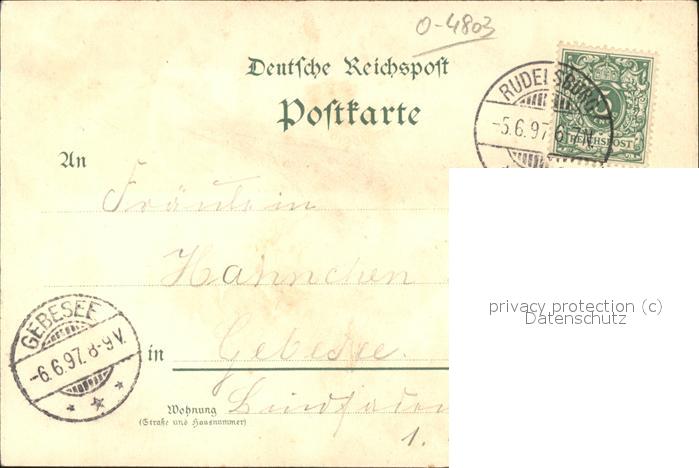 O-4803
Deutsche Reichspost
Postkarte
RUDELSBURG
-5.6.97. 6-7N.
REICHSPOST
An
Fräulein
Hannchen
privacy protection (c)
Datenschutz
GEBESEE
-6.6.97. 8-9V.
in Gebesee.
Wohnung
(Straße und Hausnummer)
1.